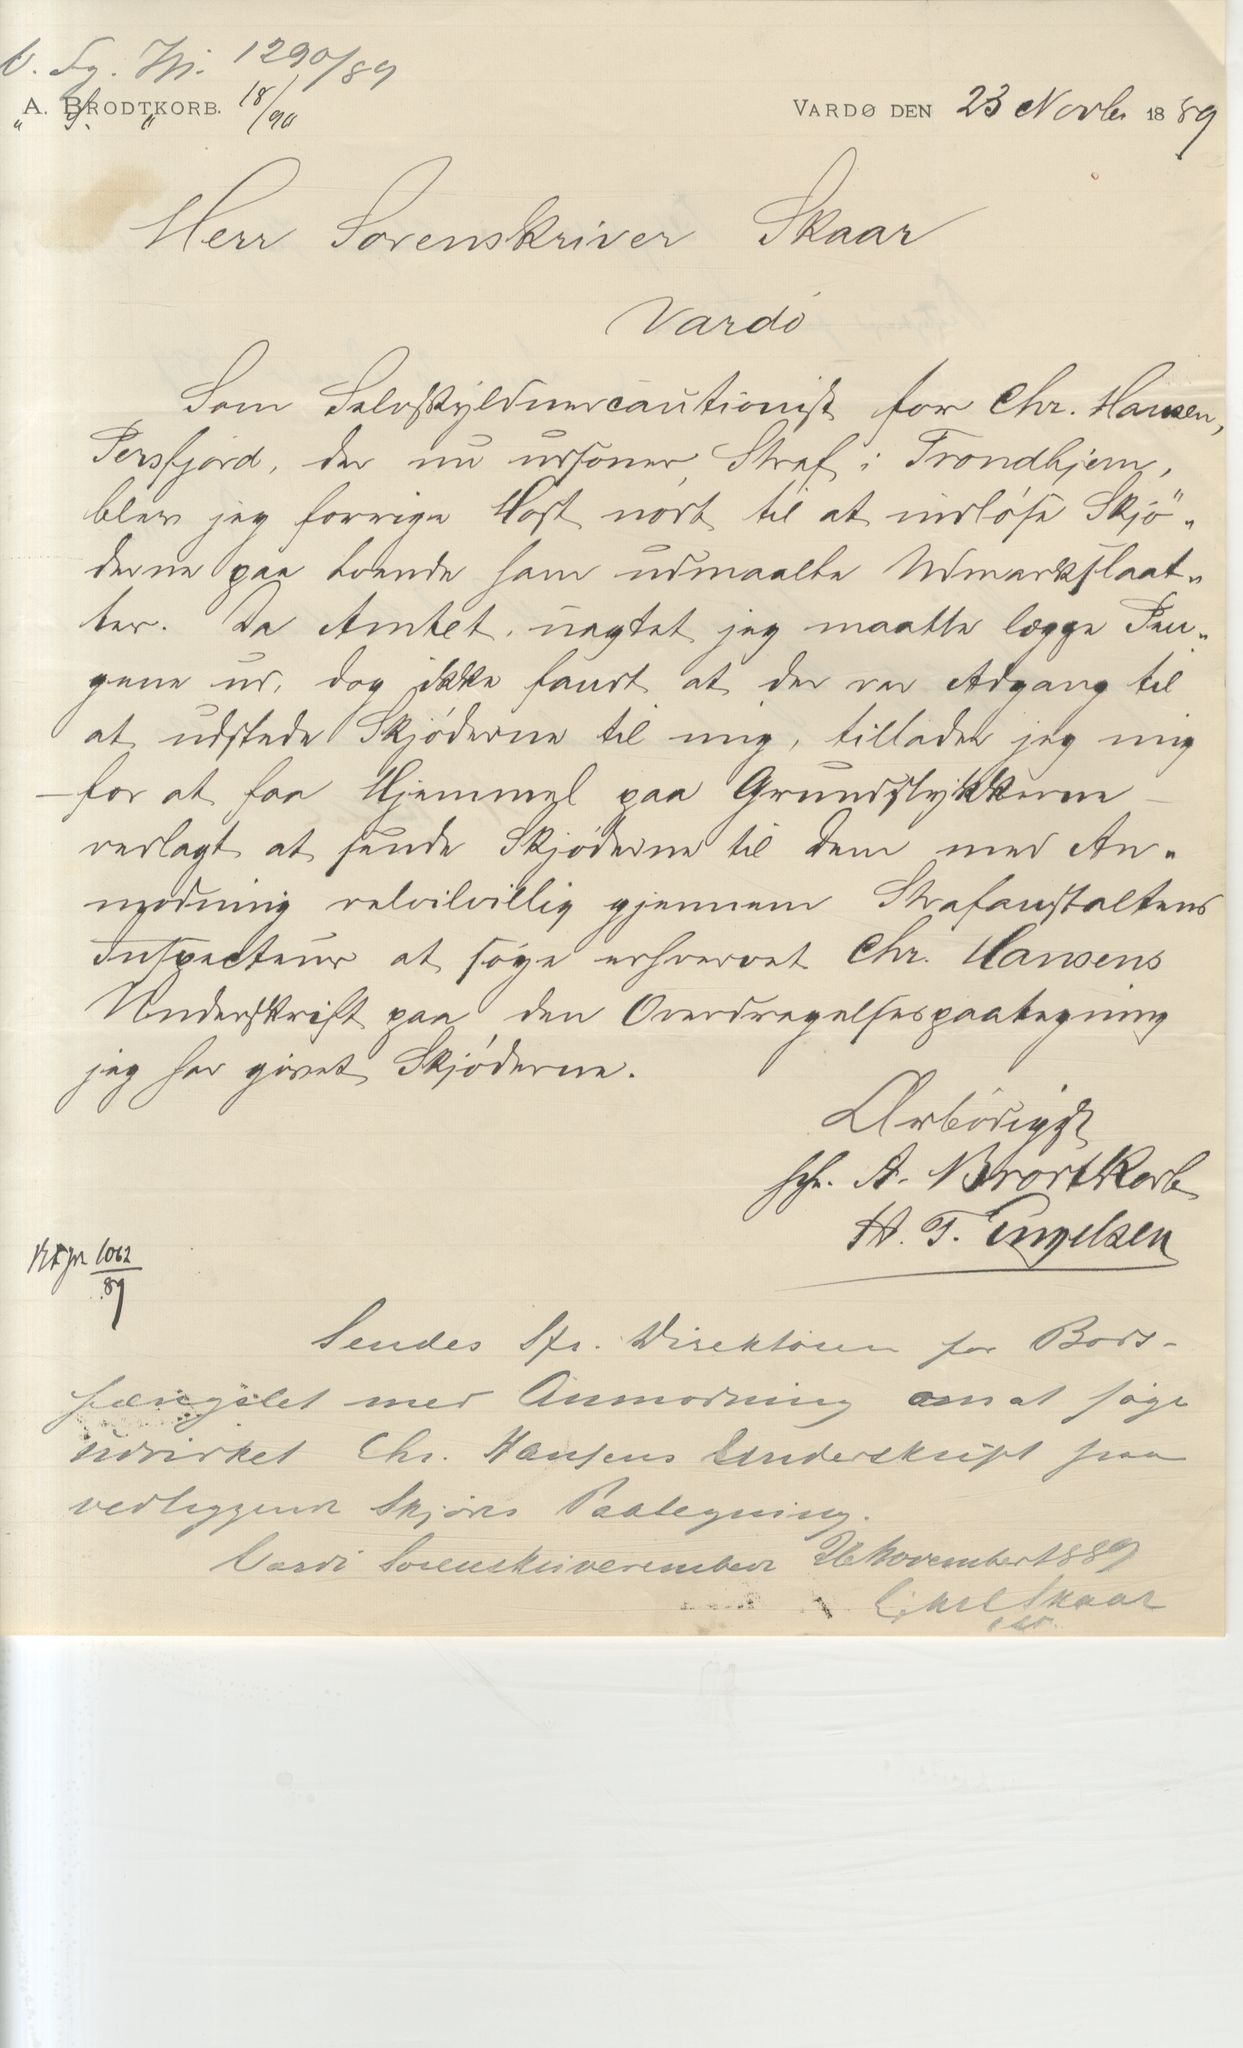 V. Fg. Jr. 1290/89
A. BRODTKORB.
" S. " 18/90
VARDØ DEN 23 Novbr 1889
Herr Sorenskriver Skaar
Vardö
Som Selvskyldnercautionist for Chr. Hansen,
Persfjord, der nu udsoner Straf i Trondhjem,
blev jeg forrige Höst nödt til at indlöse Skjö„
derne paa tvende ham udmaalte Udmarkslaat„
ter. Da Amtet, uagtet jeg maatte lægge Pen„
gene ud, dog ikke fandt at der var Adgang til
at udstede Skjöderne til mig, tillader jeg mig
– for at faa Hjemmel paa Grundstykkerne –
vedlagt at sende Skjöderne til Dem med An„
modning velvilvillig gjennem Strafanstaltens
Inspecteur at söge erhvervet Chr. Hansens
Underskrift paa den Overdragelsespaategning
jeg har givet Skjöderne.
Ærbödigst
A. Brodtkorb
H. T. Engelsen
1062/89
Sendes Hr. Direktören for Bods-
fængslet med Anmodning om at söge
udvirket Chr. Hansens Underskrift paa
vedliggende Skjöds Paategning.
Vardö Sorenskriverembede 26 November 1889
Carl Skaar
cst.